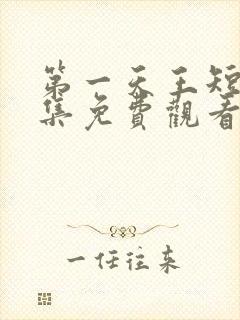 第一天王短
集免費觀看
一任往来